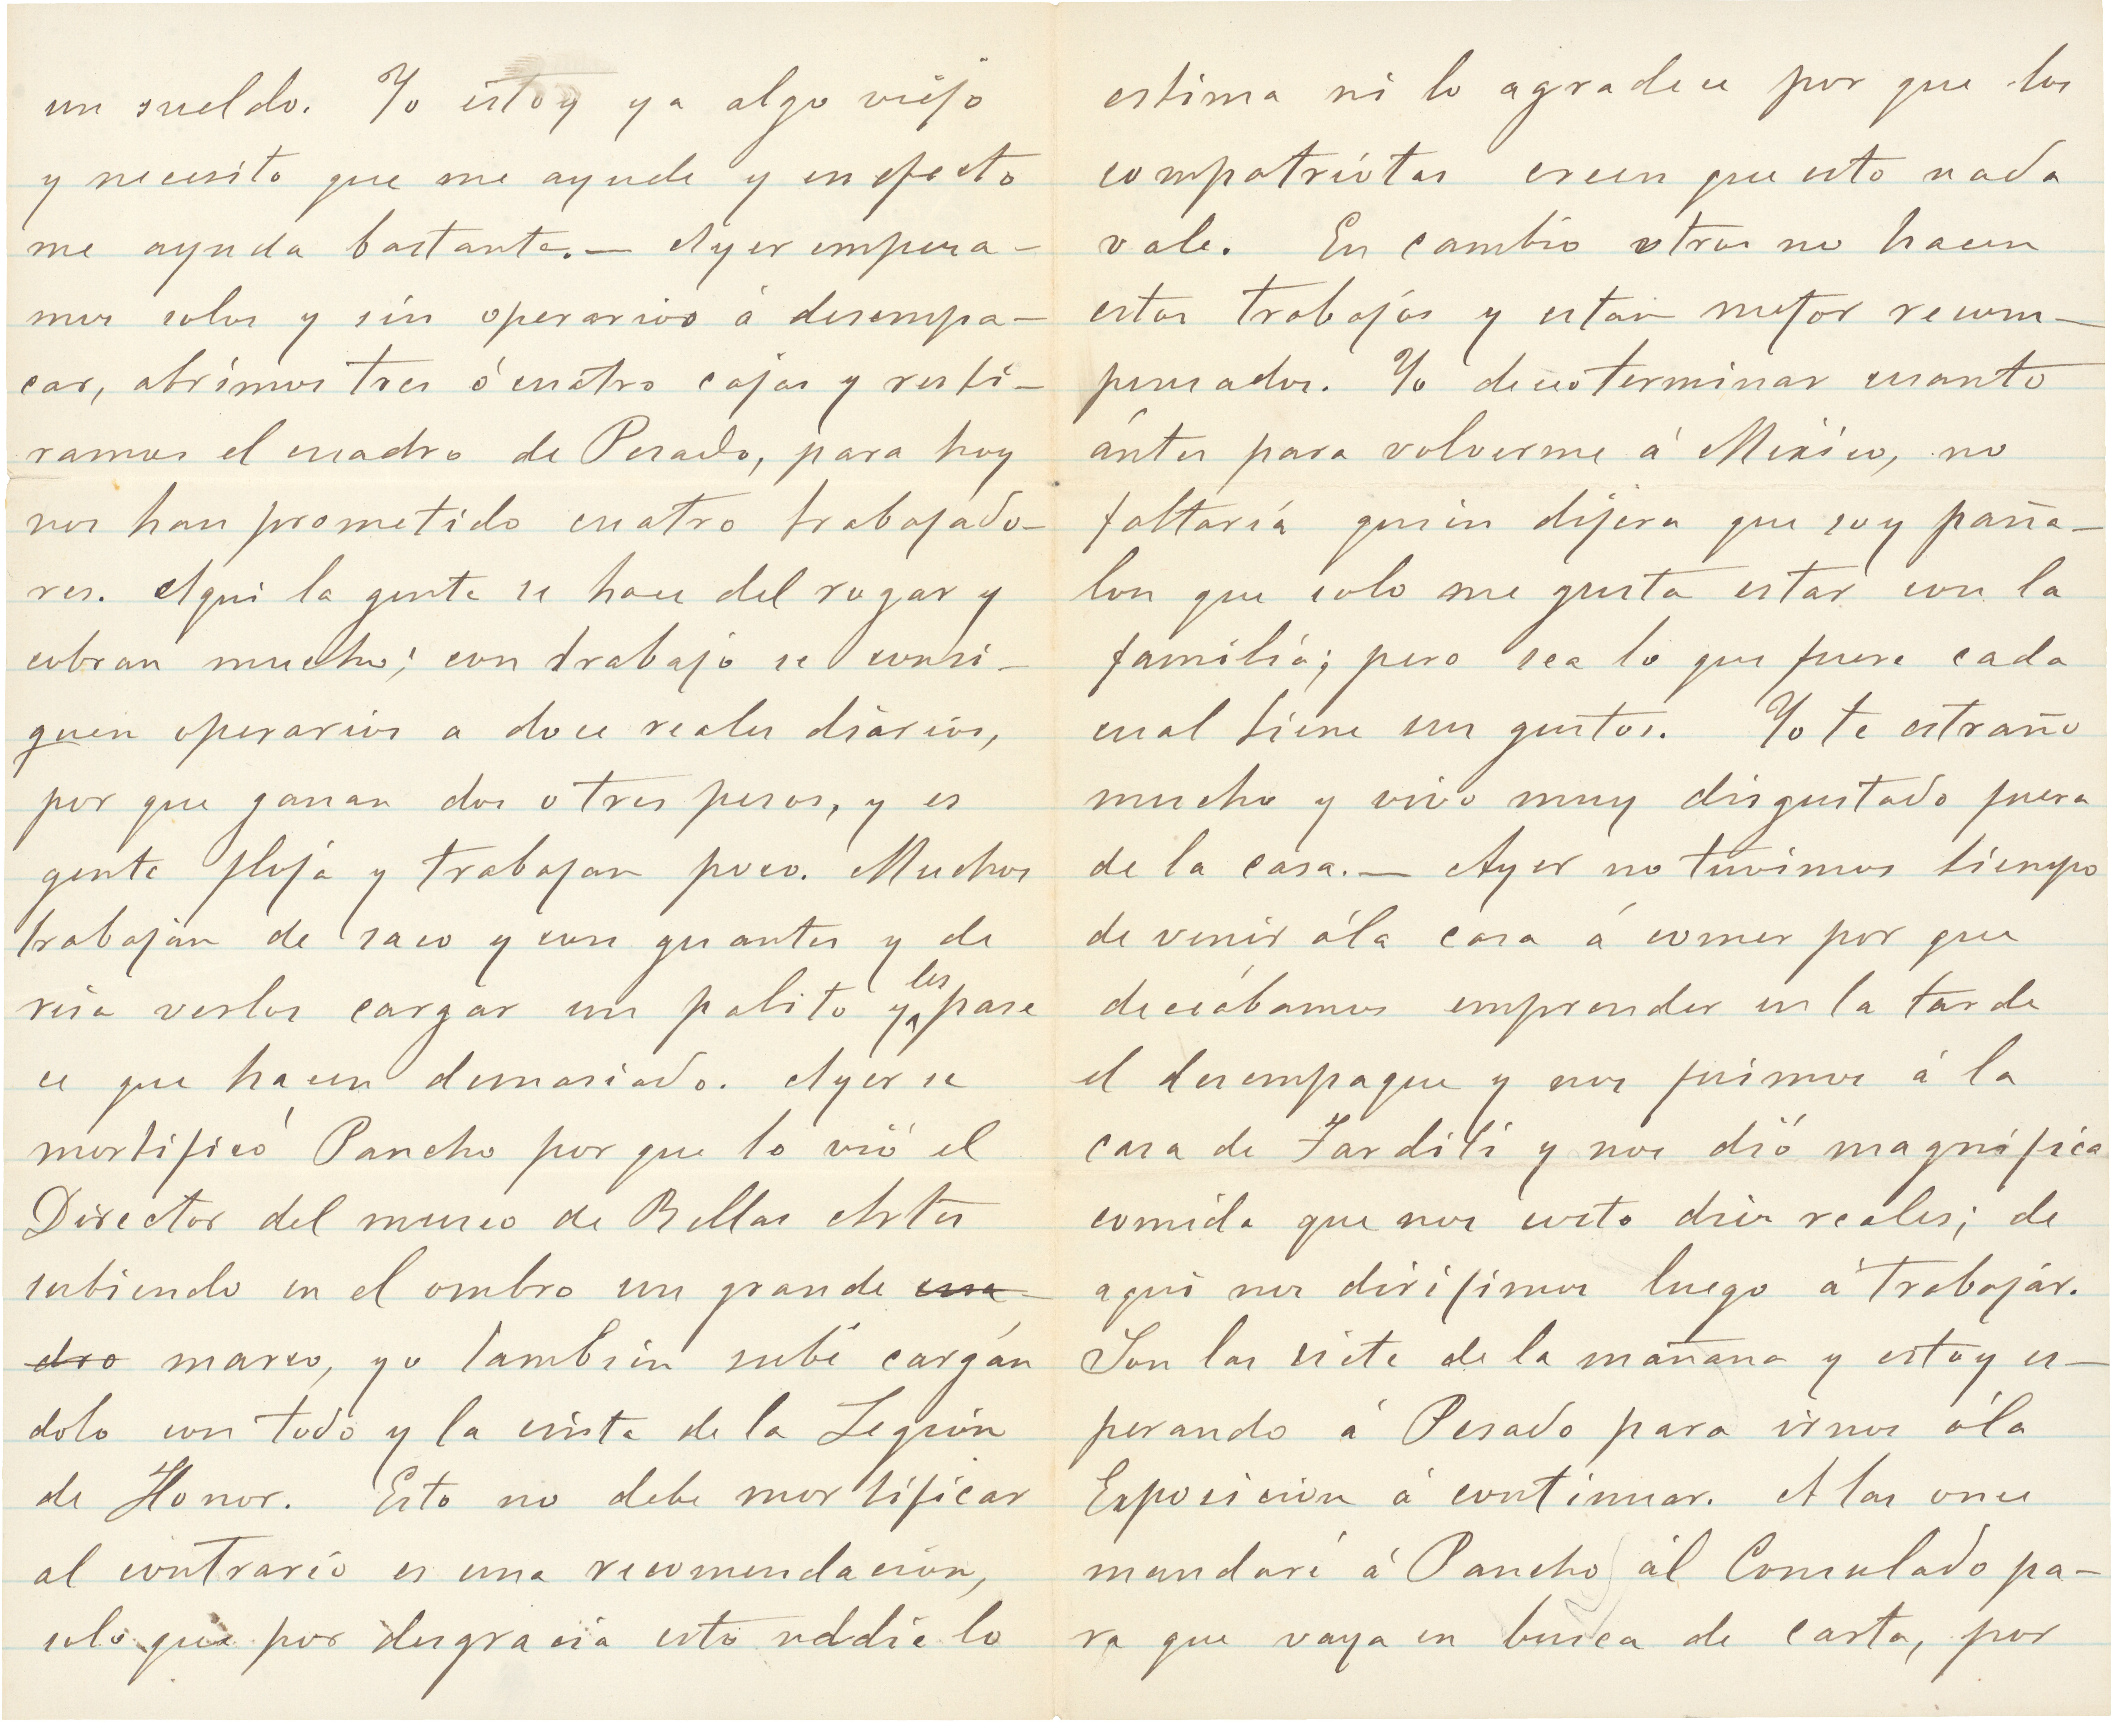 un sueldo. Yo estoy ya algo viejo
y necesito que me ayude y en efecto
me ayuda bastante. — Ayer empeza-
mos solos y sin operarios á desempa-
car, abrimos tres ó cuatro cajas y resti-
ramos el cuadro de Pesado, para hoy
nos han prometido cuatro trabajado-
res. Aqui la gente se hace del rogar y
cobran mucho; con trabajo se consi-
guen operarios a doce reales diarios,
por que ganan dos o tres pesos, y es
gente floja y trabajan poco. Muchos
trabajan de saco y con guantes y da
risa verlos cargar un palito y les pare
ce que hacen demasiado. Ayer se
mortificó Pancho por que lo vió el
Director del museo de Bellas Artes
subiendo en el ombro un grande cua-
dro marco, yo tambien subí cargán
dolo con todo y la cinta de la Legión
de Honor. Esto no debe mortificar
al contrario es una recomendacion,
solo que por desgracia esto naddie lo
estima ni lo agradece por que los
compatriotas creen que esto nada
vale. En cambio otros no hacen
estos trabajos y estan mejor recom-
pensados. Yo deseo terminar cuanto
ántes para volverme á México, no
faltaría quien dijera que soy paña-
lon que solo me gusta estar con la
familia; pero sea lo que fuere cada
cual tiene sus gustos. Yo te estraño
mucho y vivo muy disgustado fuera
de la casa. — Ayer no tuvimos tiempo
de venir á la casa á comer por que
deceábamos emprender en la tarde
el desempaque y nos fuimos á la
casa de Tarditi y nos dió magnífica
comida que nos costo diez reales; de
aqui nos dirijimos luego á trabajar.
Son las siete de la mañana y estoy es-
perando á Pesado para irnos á la
Exposicion á continuar. A las once
mandaré á Pancho ál Consulado pa-
ra que vaya en busca de carta, por